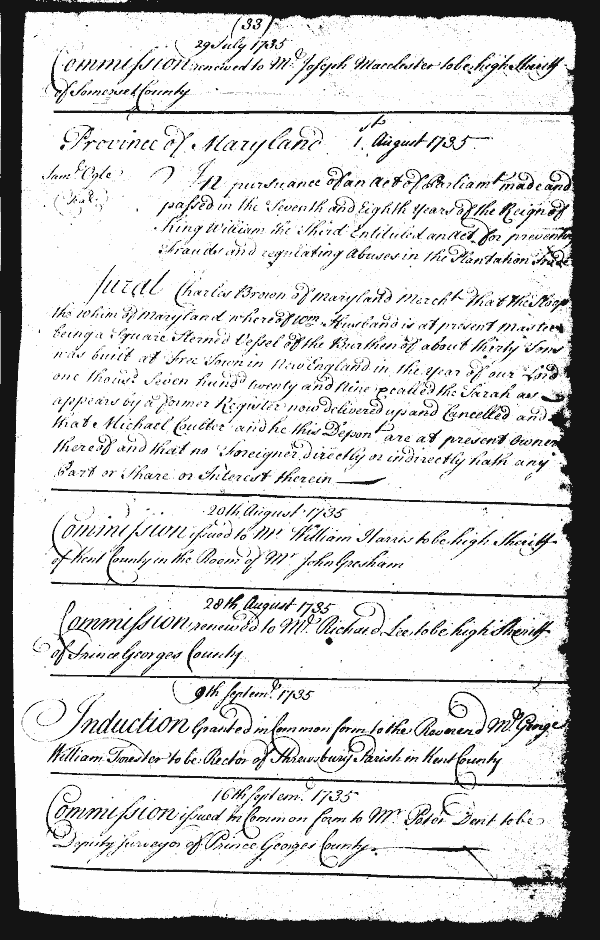 (33)
29 July 1735
Commission renewed to Mr. Joseph Maclester to be high Sheriff
of Somerset County
Province of Maryland 1st. August 1735
Saml. Ogle In pursuance of an Act of Parliamt. made and
passed in the Seventh and Eighth Years of the Reign of
King William the Third Entituled an Act for preventing
Frauds and regulating Abuses in the Plantation Trade
Jurat Charles Brown of Maryland Mercht. that the Sloop
the whim of Maryland whereof Wm. Husband is at present master
being a Square Sterned Vessel of the Burthen of about thirty Tons
was built at Free Town in New England in the year of our Lord
one thousd. Seven hund. twenty and Nine called the Sarah as
appears by a former Register now delivered up and Cancelled and
that Michael Coulter and he this Depont. are at present Owners
thereof and that no Foreigner directly or indirectly hath any
Part or Share or Interest therein
20th August 1735
Commission issued to Mr. William Harris to be high Sheriff
of Kent County in the Room of Mr John Gresham
28th August 1735
Commission renewed to Mr. Richard Lee to be high Sheriff
of Prince Georges County
9th Septemr. 1735
Induction Granted in Common form to the Reverend Mr. George
William Forester to be Rector of Shrewsbury Parish in Kent County
16th Septemr. 1735
Commission issued in Common form to Mr. Peter Dent to be
Deputy Surveyor of Prince Georges County.